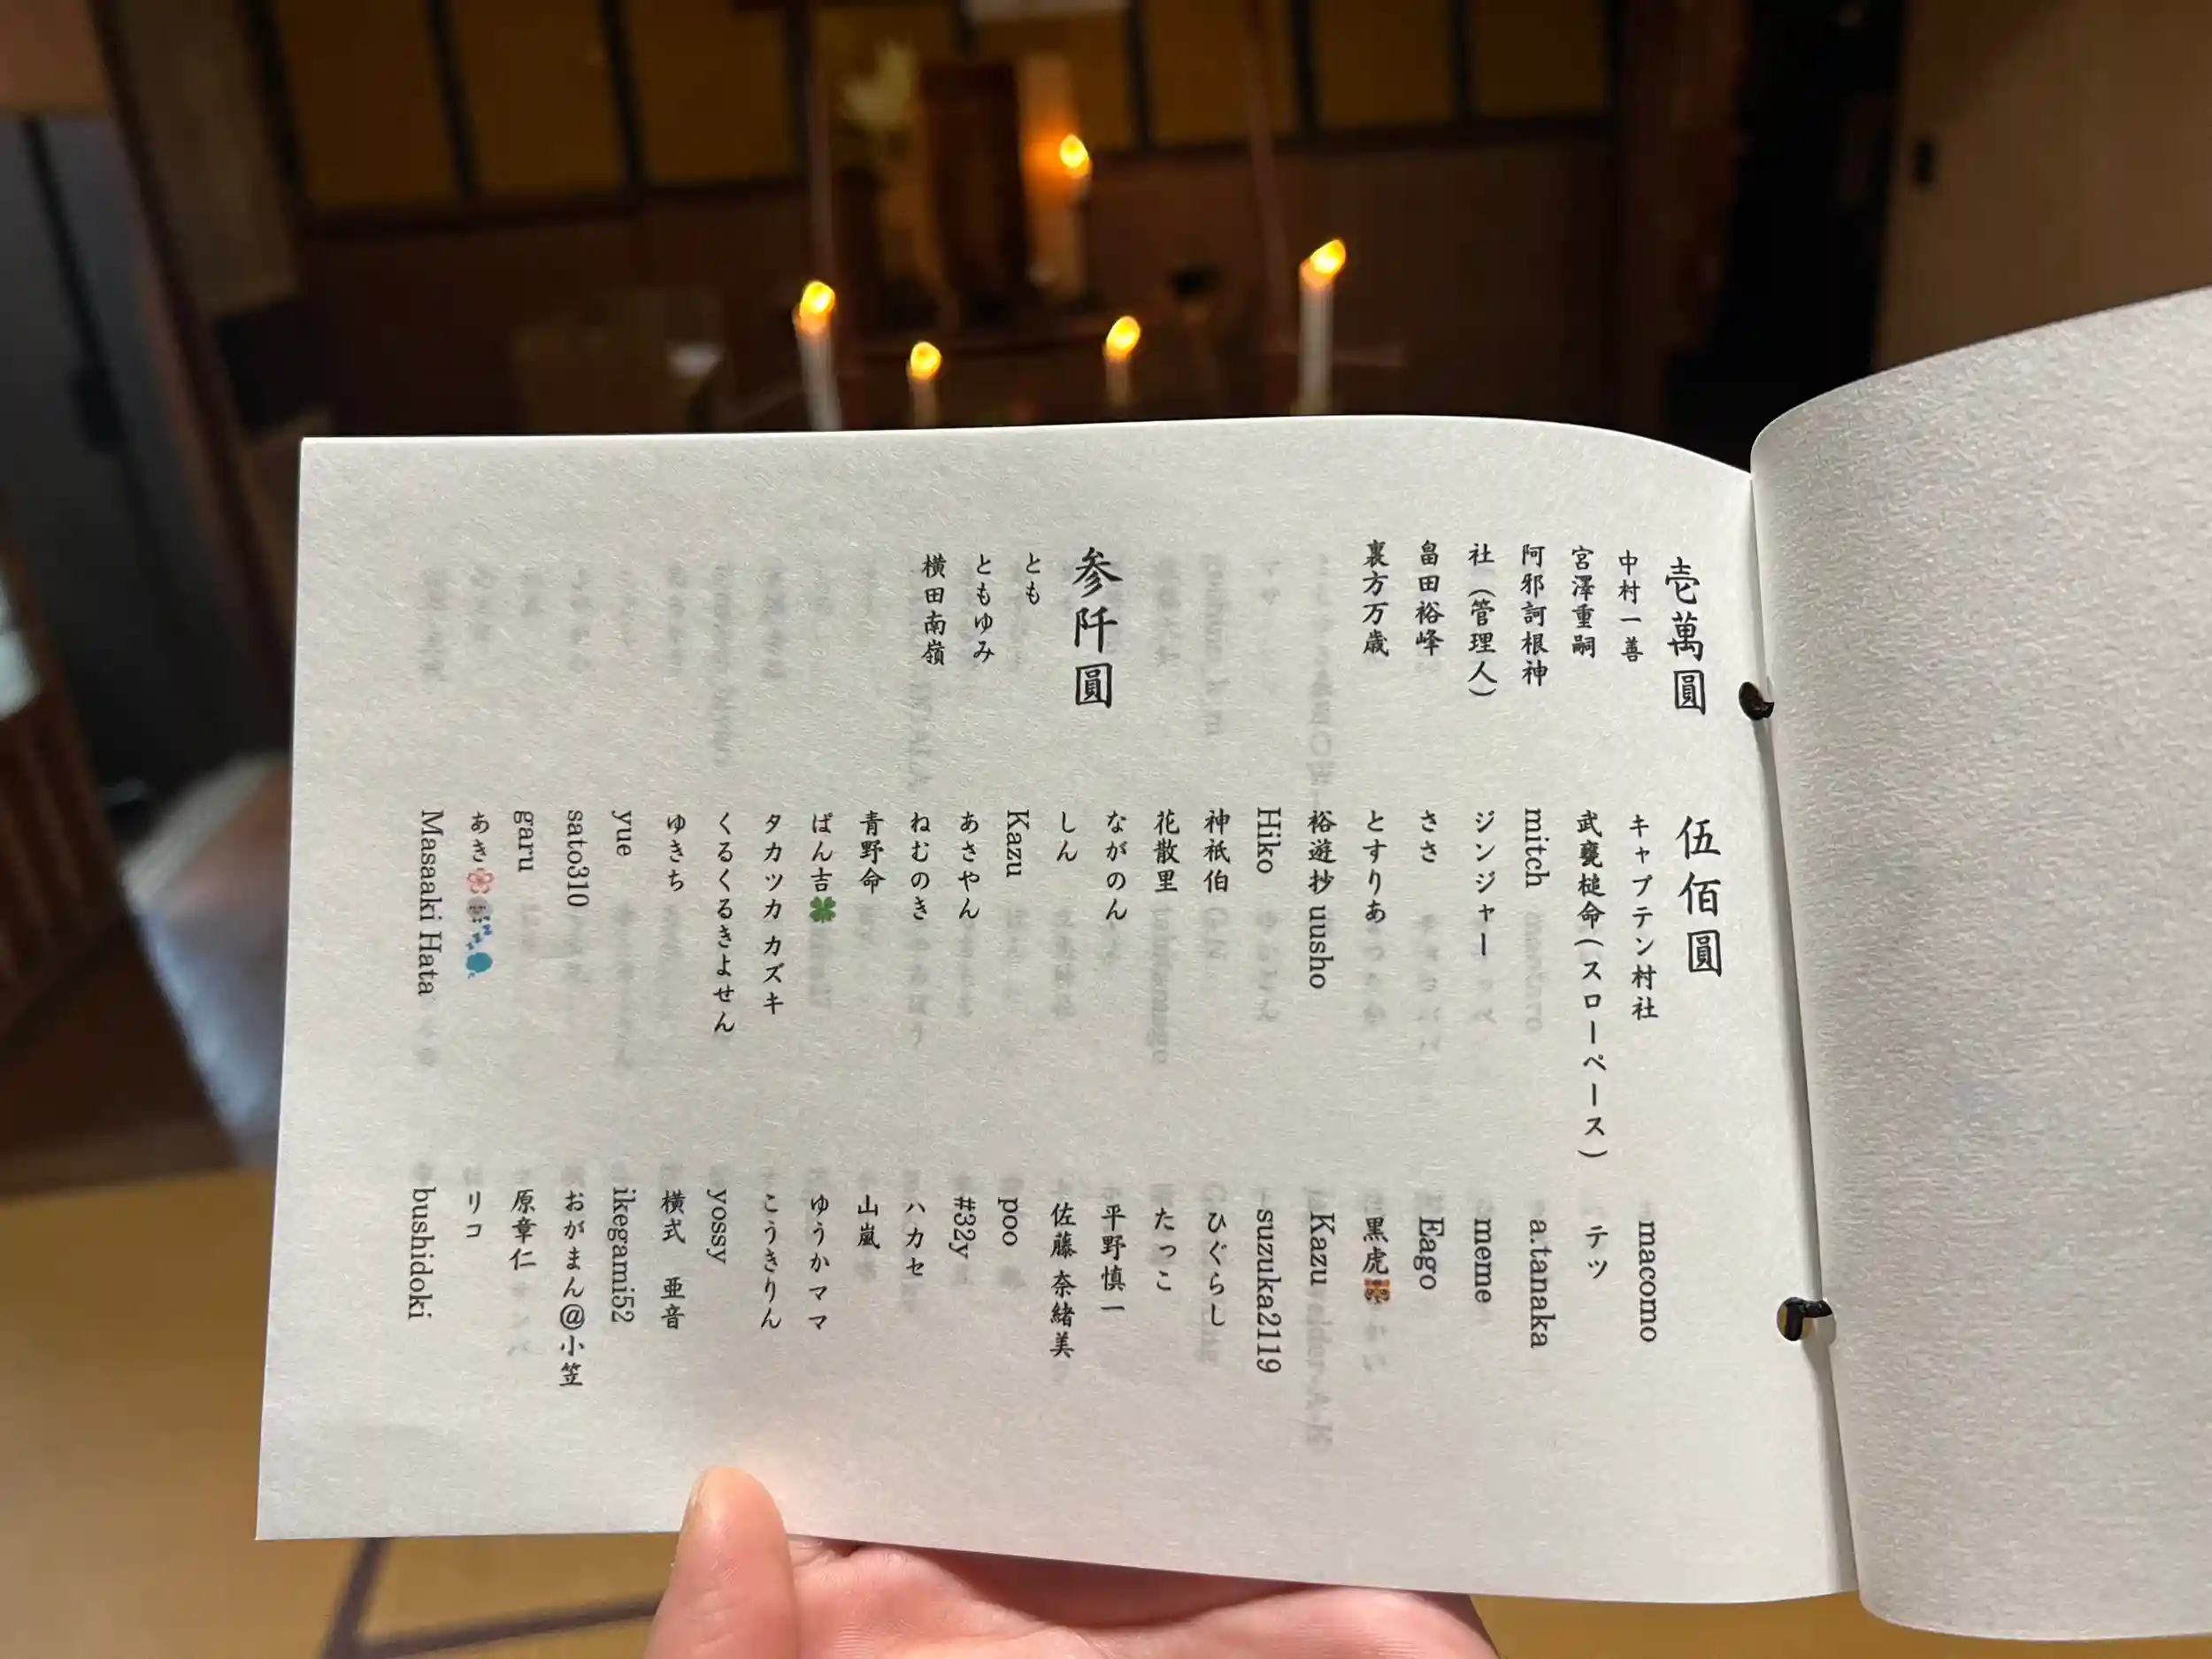 壱萬圓
中村一善
宮澤重嗣
阿邪訶根神
社(管理人)
畠田裕峰
裏方万歳
参阡圓
とも
ともゆみ
横田南嶺
伍佰圓
キャプテン村社
武甕槌命(スローペース)
mitch
ジンジャー
ささ
とすりあ
裕遊抄 uusho
Hiko
神祇伯
花散里
ながのん
しん
Kazu
あさやん
ねむのき
青野命
ぱん吉🍀
タカツカ カズキ
くるくるきよせん
ゆきち
yue
sato310
garu
あき🌸
Masaaki Hata
macomo
テツ
a.tanaka
meme
Eago
黒虎
Kazu
suzuka2119
ひぐらし
たっこ
平野慎一
佐藤 奈緒美
poo
#32y
ハカセ
山嵐
ゆうかママ
こうきりん
yossy
横式 亜音
ikegami52
おがまん@小笠
原章仁
リコ
bushidoki